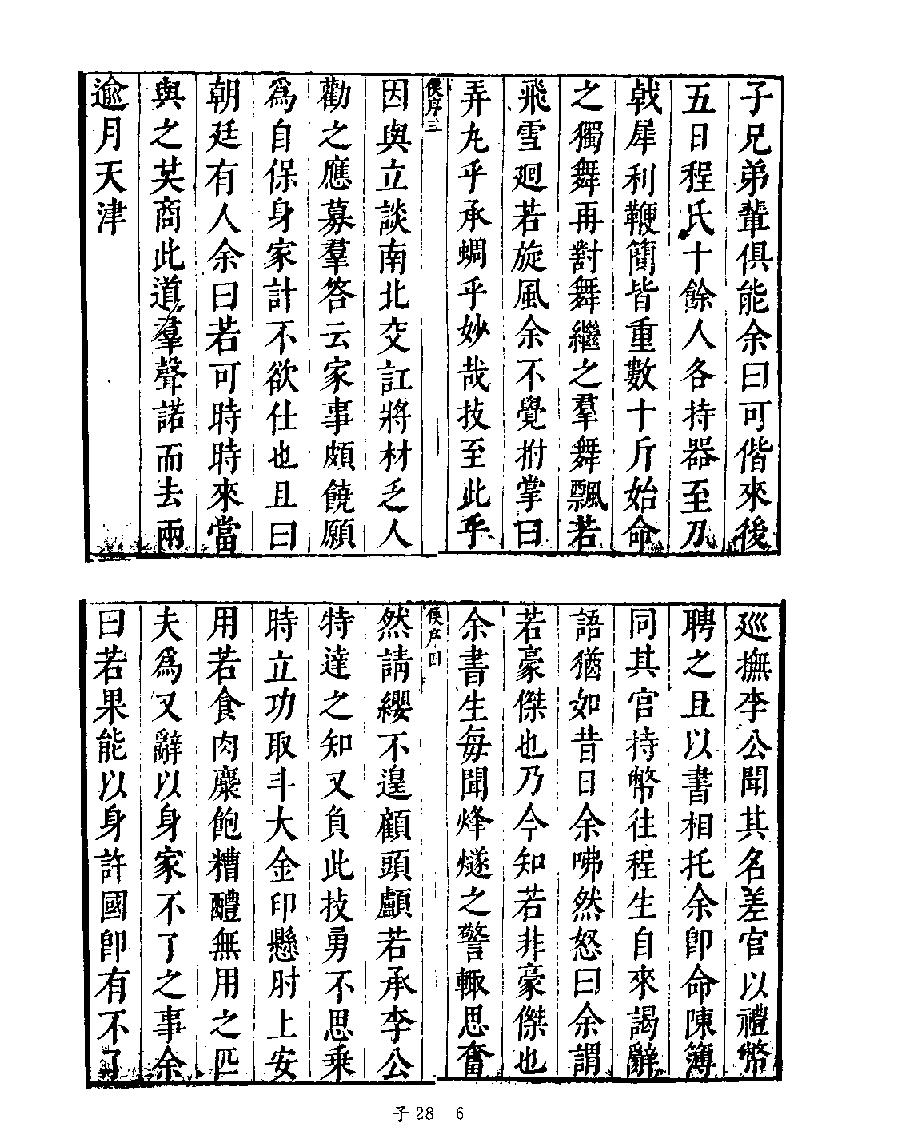 子兄弟輩俱能余曰可偕來後
五日程氏十餘人各持器至刀
戟犀利鞭簡皆重數十斤始命
之獨舞再對舞繼之羣舞飄若
飛雪廻若旋風余不覺拊掌曰
弄丸乎承蜩乎妙哉技至此乎
後序三
因與立談南北交訌將材乏人
勸之應募羣答云家事頗饒願
爲自保身家計不欲仕也且曰
朝廷有人余曰若可時時來當
與之某商此道羣聲諾而去兩
逾月天津
廵撫李公聞其名差官以禮幣
聘之且以書相托余卽命陳簿
同其官持幣往程生自來謁辭
語猶如昔日余咈然怒曰余謂
若豪傑也乃今知若非豪傑也
余書生每聞烽燧之警輙思奮
後序四
然請纓不遑顧頭顱若承李公
特達之知又負此技勇不思乘
時立功取斗大金印懸肘上安
用若食肉糜飽糟醴無用之匹
夫爲又辭以身家不了之事余
曰若果能以身許國卽有不了
子28 6